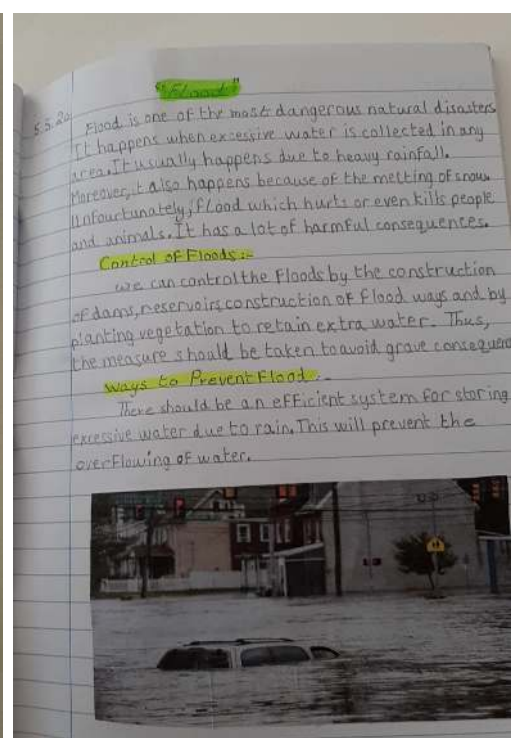 "Flood"
5.5.20
Flood is one of the most dangerous natural disasters
It happens when excessive water is collected in any
area. It usually happens due to heavy rainfall.
Moreover, it also happens because of the melting of snow.
Unfourtunately, flood which hurts or even kills people
and animals. It has a lot of harmful consequences.
Control of Floods:-
we can control the floods by the construction
of dams, reservoirs, construction of flood ways and by
planting vegetation to retain extra water. Thus,
the measure should be taken to avoid grave consequen
Ways to Prevent Flood:-
There should be an efficient system for storing
excessive water due to rain. This will prevent the
overflowing of water.